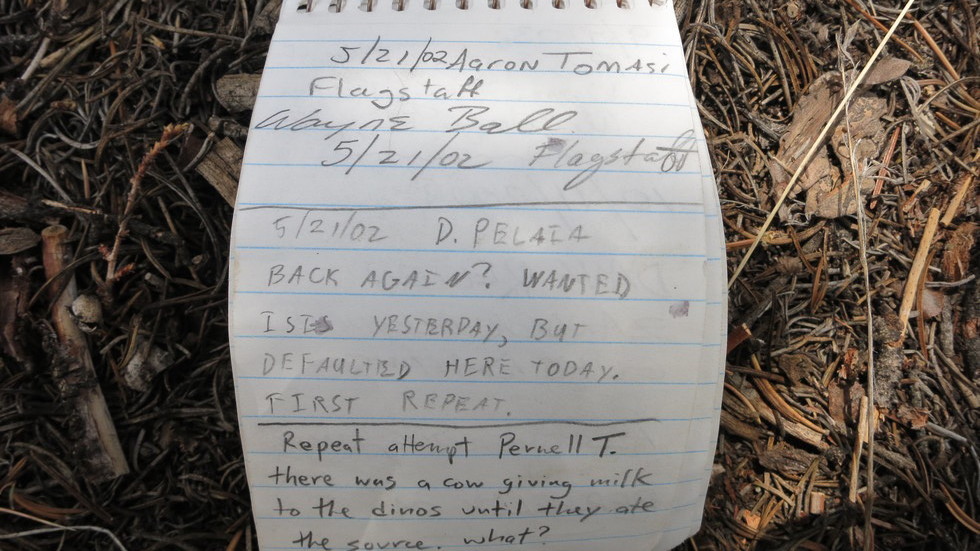 5/21/02 Aaron Tomasi
Flagstaff
Wayne Ball
5/21/02 Flagstaff
5/21/02 D. PELAIA
BACK AGAIN? WANTED
ISIS YESTERDAY, BUT
DEFAULTED HERE TODAY.
FIRST REPEAT.
Repeat attempt Pernell T.
there was a cow giving milk
to the dinos until they ate
the source. what?